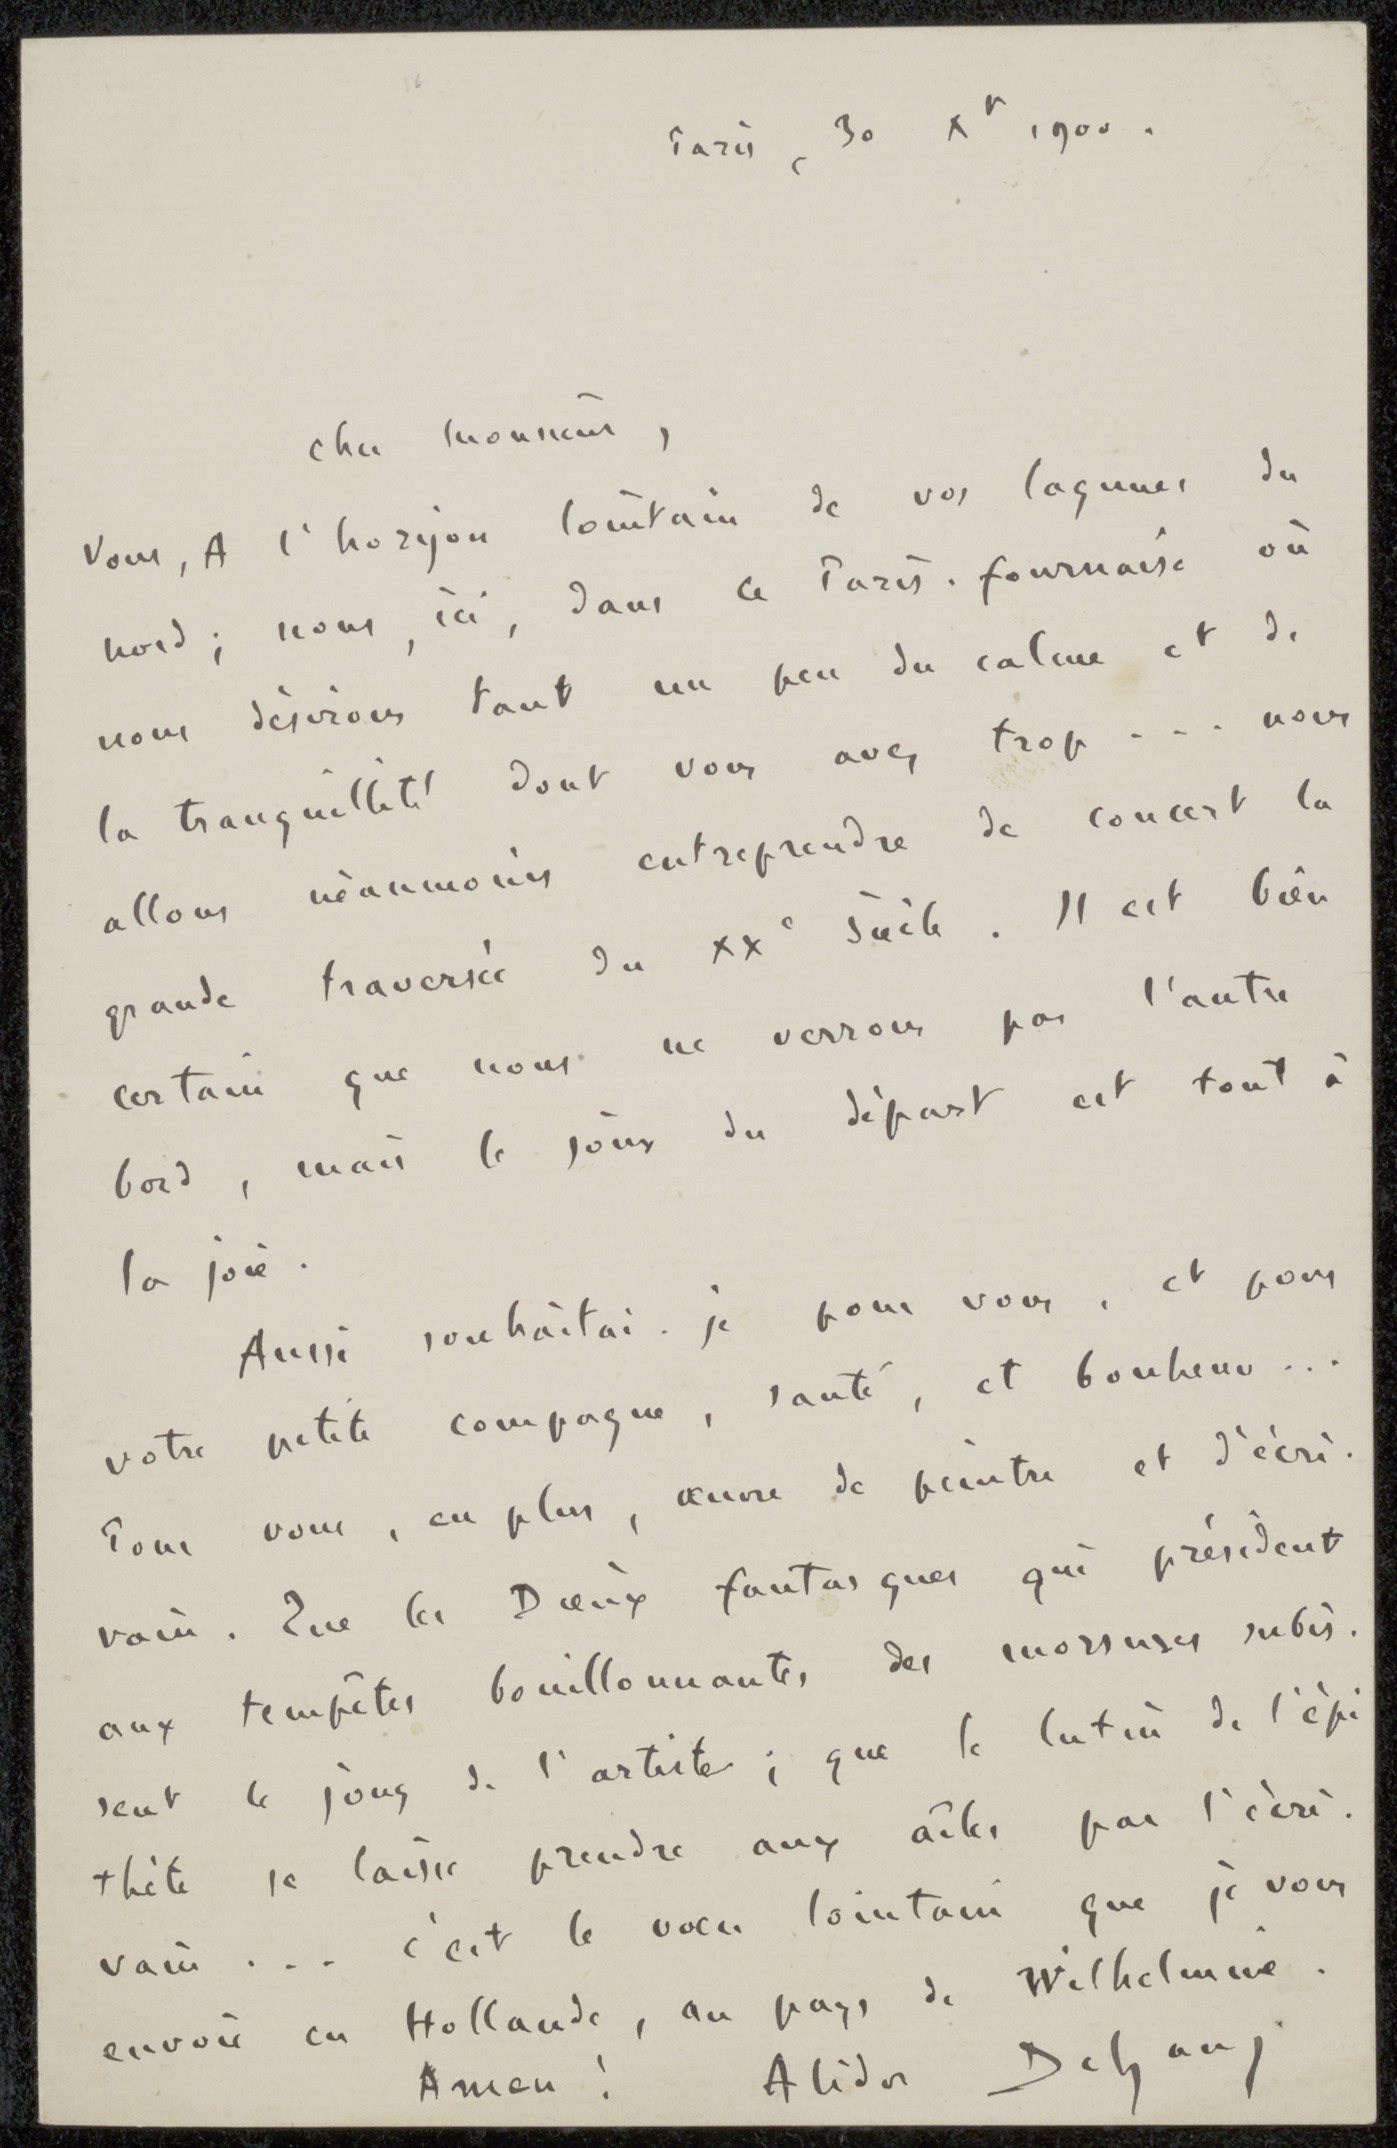 Paris, 30 Xr 1900.
Cher Monsieur,
Vous, A l'horizon lointain de vos lagunes du
nord; nous, ici, dans ce Paris-fournaise où
nous désirons tant un peu du calme et de
la tranquillité dont vous avez trop . . . nous
allons néanmoins entreprendre de concert la
grande traversée du XXe siècle. Il est bien
certain que nous ne verrons pas l'autre
bord, mais le jour du départ est tout à
la joie.
Aussi souhaitai-je pour vous, et pour
votre petite compagne, santé, et bonheur . . .
Pour vous, en plus, œuvre de peintre et d'écri-
vain. Que les Dieux fantasques qui président
aux tempêtes bouillonnantes des morsures subis-
sent le joug de l'artiste; que le lutin de l'épi
thète se laisse prendre aux ailes par l'écri-
vain . . . c'est le vœu lointain que je vous
envoie en Hollande, au pays de Wilhelmine.
Amen! Alidor Delzant